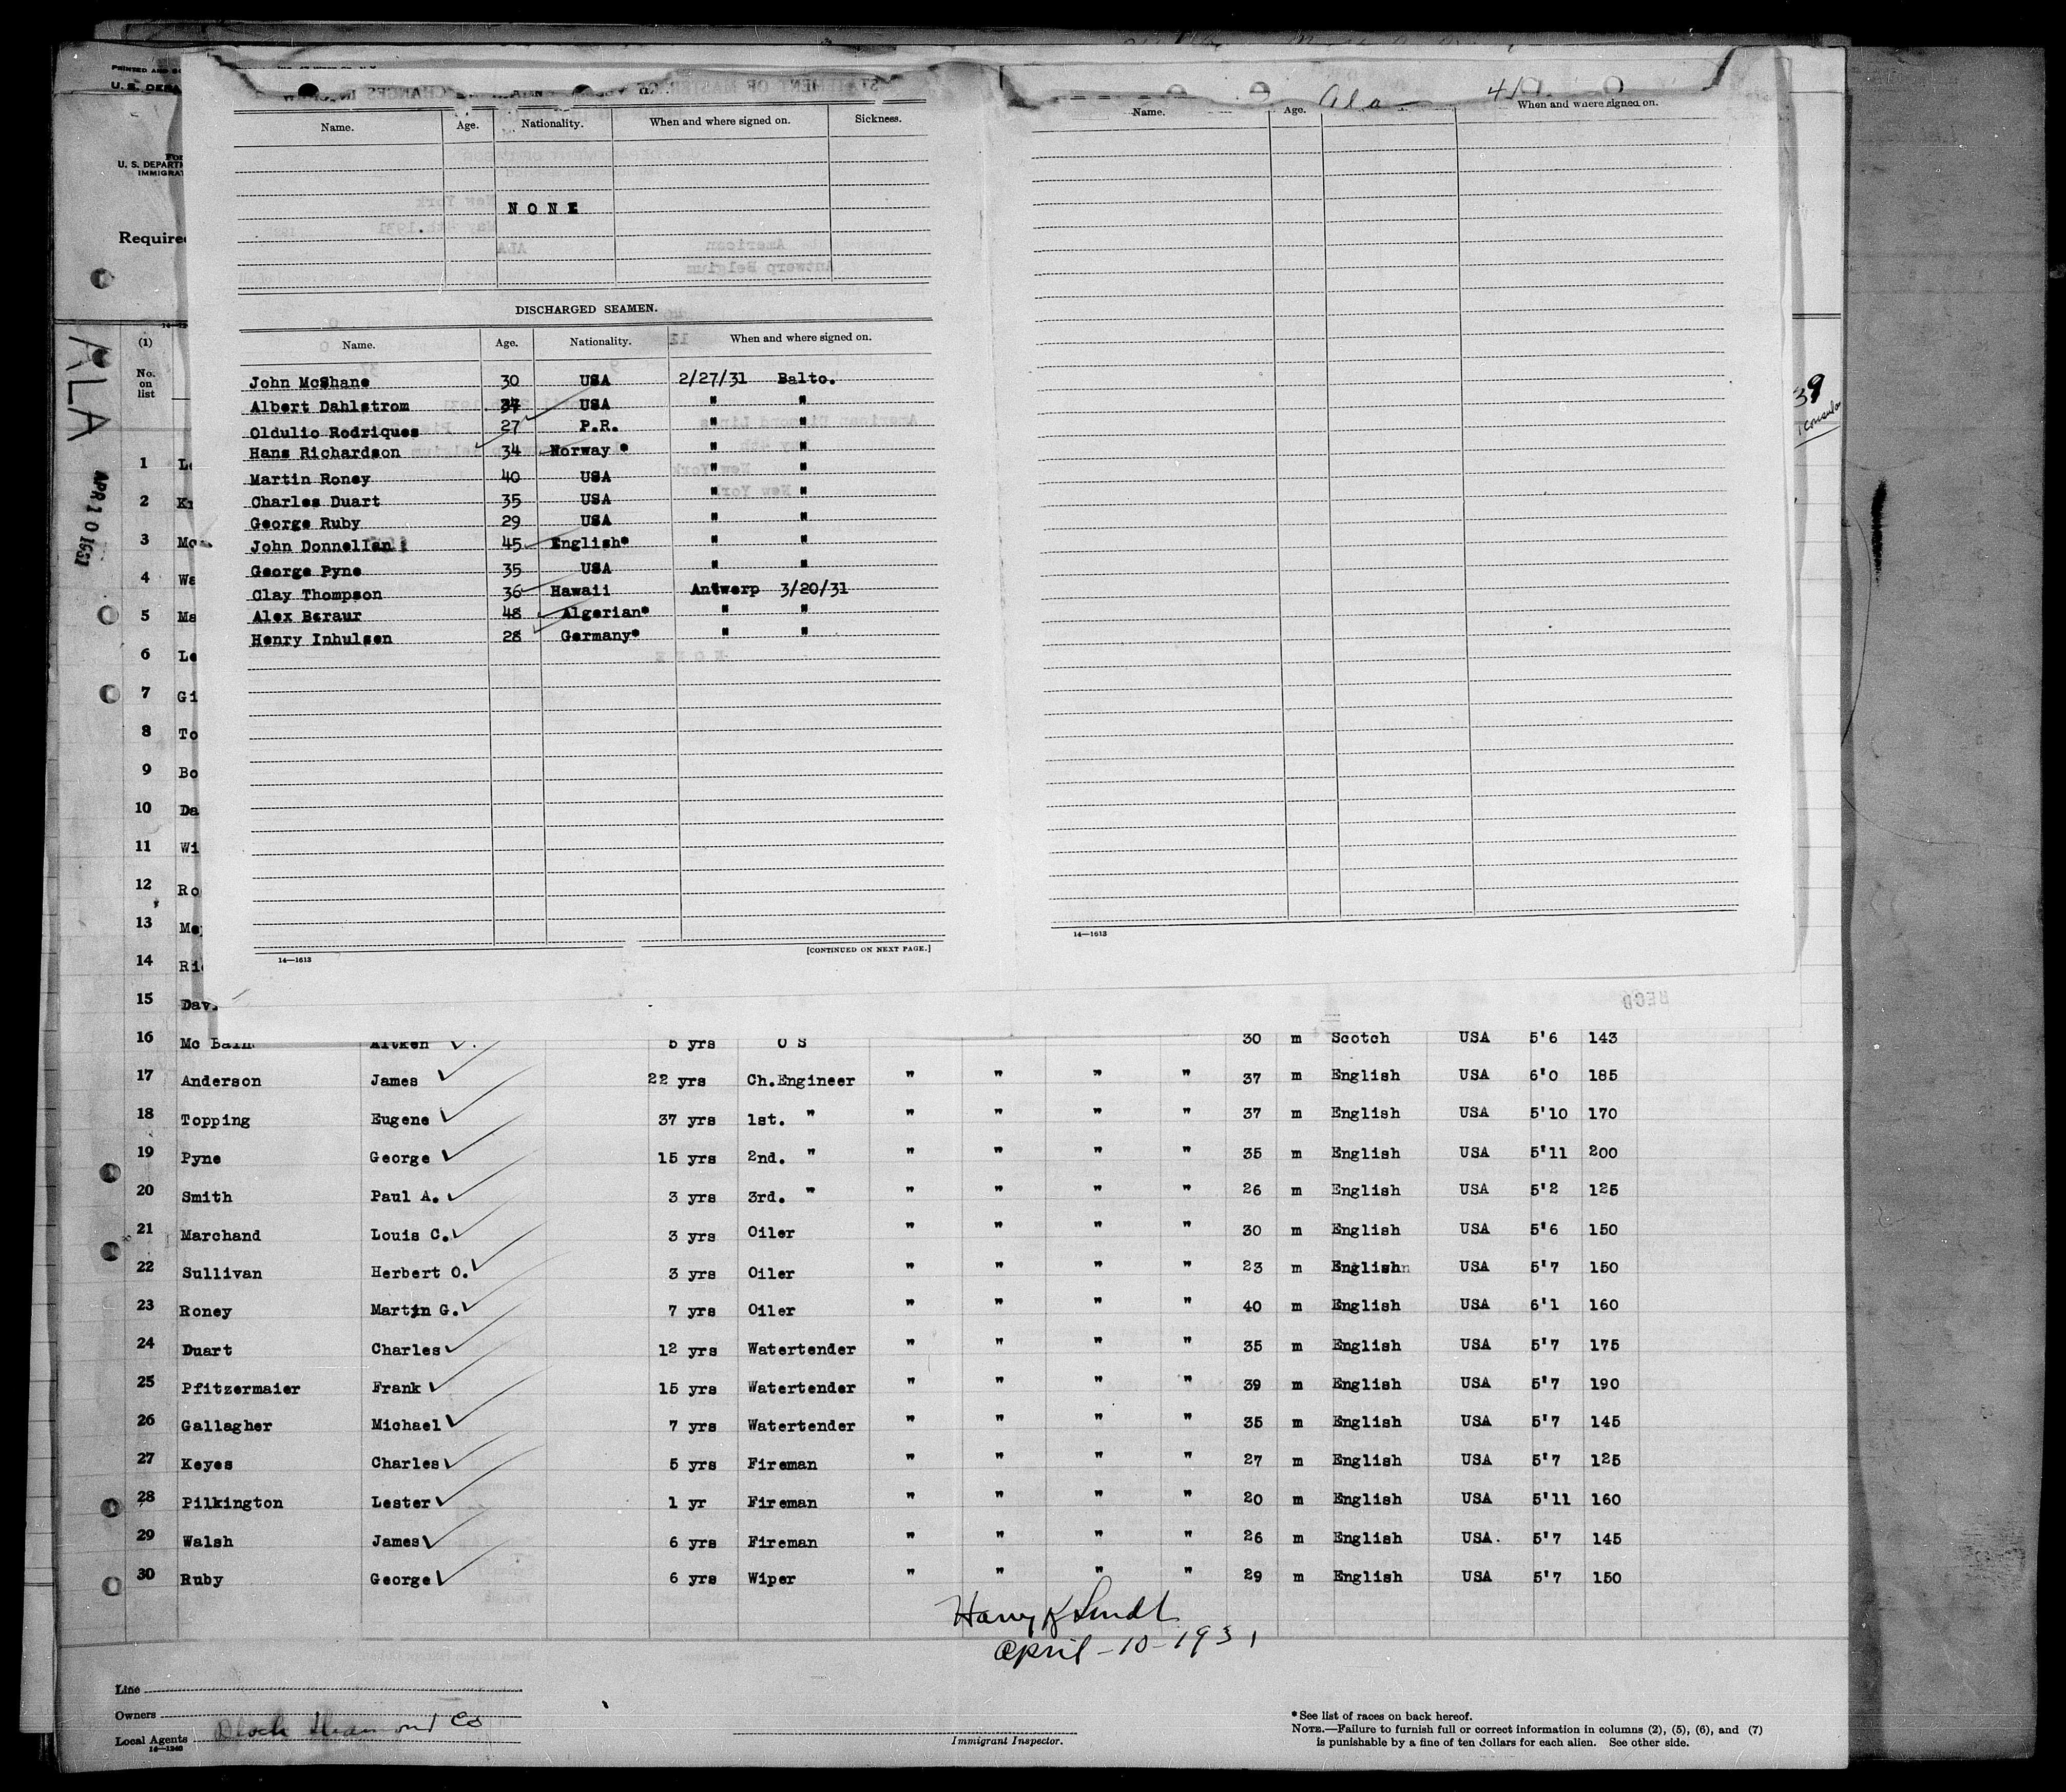 Ala 41
Name. Age. Nationality. When and where signed on. Sickness.
NONE
Name. Age. When and where signed on.
DISCHARGED SEAMEN.
Name. Age. Nationality. When and where signed on.
John McShane 30 USA 2/27/31 Balto.
Albert Dahlstrom USA " "
Oldulio Rodriques 27 P.R. " "
Hans Richardson 34 Norway* " "
Martin Roney 40 USA " "
Charles Duart 35 USA " "
George Ruby 29 USA " "
John Donnellan 45 English* " "
George Pyne 35 USA " "
Clay Thompson 36 Hawaii Antwerp 3/20/31
Alex Beraur 48 Algerian* " "
Henry Inhulsen 28 Germany* " "
14—1613 [CONTINUED ON NEXT PAGE.]
14—1613
U. S. DEPA
U. S. DEPART
IMMIGRA
Require
ALA
APR 10 1931
39
(1)
No.
on
list
1 Le
2 Kr
3 Mc
4 Wa
5 Ma
6 Le
7 Gi
8 To
9 Bo
10 Da
11 Wi
12 Ro
13 Me
14 Ric
15 Dav
16 Mc Bain Aitken 5 yrs O S 30 m Scotch USA 5'6 143
17 Anderson James 22 yrs Ch.Engineer " " " " 37 m English USA 6'0 185
18 Topping Eugene 37 yrs 1st. " " " " " 37 m English USA 5'10 170
19 Pyne George 15 yrs 2nd. " " " " " 35 m English USA 5'11 200
20 Smith Paul A. 3 yrs 3rd. " " " " " 26 m English USA 5'2 125
21 Marchand Louis C. 3 yrs Oiler " " " " 30 m English USA 5'6 150
22 Sullivan Herbert O. 3 yrs Oiler " " " " 23 m English USA 5'7 150
23 Roney Martin G. 7 yrs Oiler " " " " 40 m English USA 6'1 160
24 Duart Charles 12 yrs Watertender " " " " 35 m English USA 5'7 175
25 Pfitzermaier Frank 15 yrs Watertender " " " " 39 m English USA 5'7 190
26 Gallagher Michael 7 yrs Watertender " " " " 35 m English USA 5'7 145
27 Keyes Charles 5 yrs Fireman " " " " 27 m English USA 5'7 125
28 Pilkington Lester 1 yr Fireman " " " " 20 m English USA 5'11 160
29 Walsh James 6 yrs Fireman " " " " 26 m English USA. 5'7 145
30 Ruby George 6 yrs Wiper " " " " 29 m English USA 5'7 150
Harry K Lundt
April-10-1931
Line
Owners
Local Agents Black Diamond Co
16—1240
Immigrant Inspector.
* See list of races on back hereof.
NOTE.—Failure to furnish full or correct information in columns (2), (5), (6), and (7)
is punishable by a fine of ten dollars for each alien. See other side.